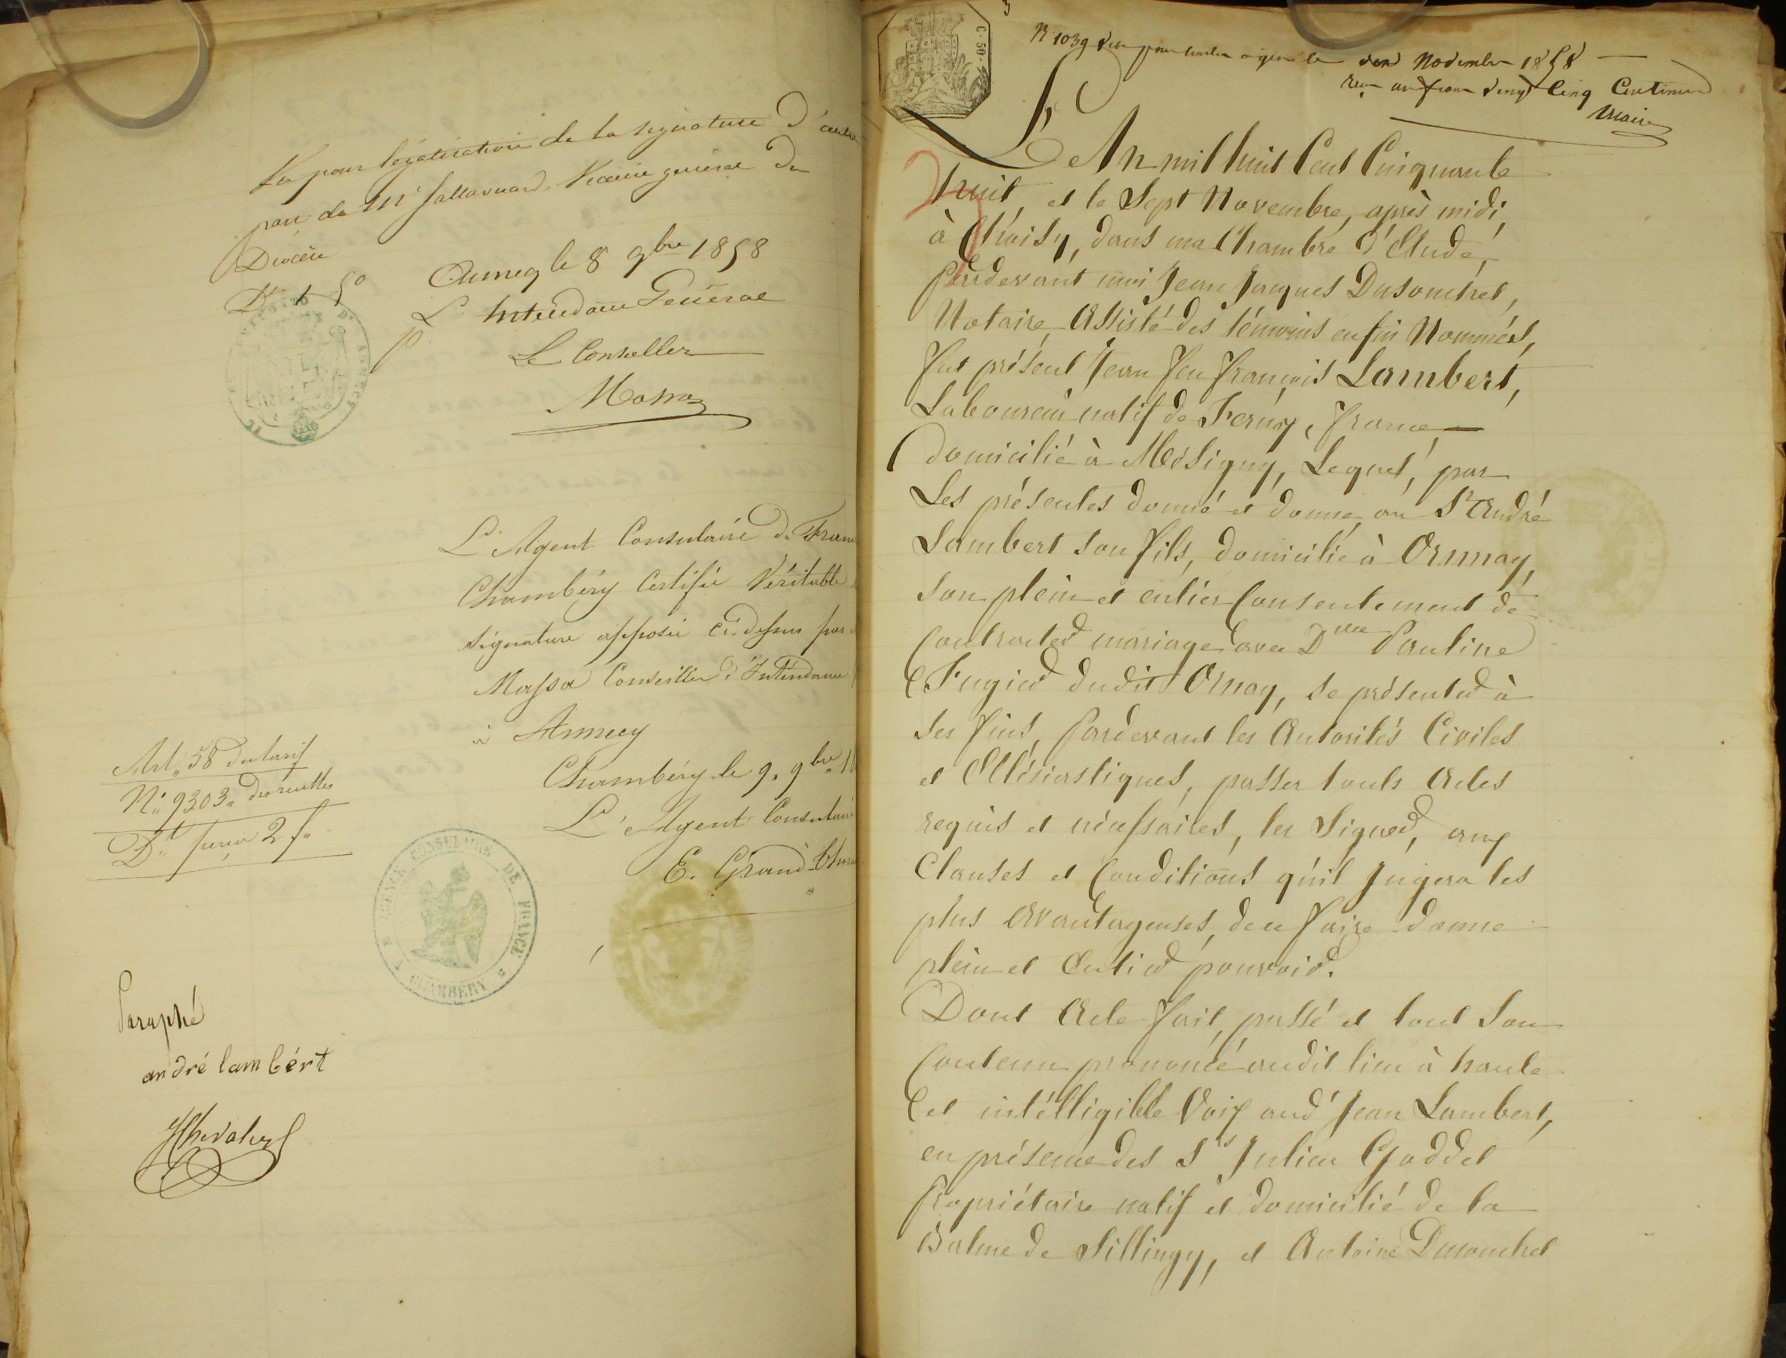 Vu pour légalisation de la signature d'autre
part de Mr Sallavuard Vicaire général du
Diocèse
Dt 1 50
Annecy le 8 9bre 1858
L'Intendant Général
p
Le Conseiller
Massa
L'Agent Consulaire de France
Chambéry Certifie Véritable
signature apposée ci-dessus par
Massa Conseiller d'Intendance
à Annecy
Chambéry le 9. 9bre 18
L'Agent Consulaire
E. Grand
Art. 58 du tarif
No. 9303 des recettes
Dt perçu 2 f.
AGENCE CONSULAIRE DE FRANCE
CHAMBÉRY
Paraphé
andré lambért
JChevalier
3
C. 50
N 1039 Vu pour timbre à gex le Novembre 1858
reçu un franc vingt Cinq Centimes
L'An mil huit Cent Cinquante
huit, et le Sept Novembre, après midi,
à Choisy, dans ma Chambre d'Etude,
Pardevant moi Jean Jacques Dusonchet,
Notaire, Assisté des témoins enfin Nommés,
fut présent Jean feu françois Lambert,
Laboureur natif de Ferney, france,
domicilié à Mésigny, Lequel, par
Les présentes donné et donne au Sr André
Lambert son fils, domicilié à Ornay,
Son plein et entier Consentement de
Contracter mariage avec Dlle Pauline
Fugier dudit Ornay, se présenter à
ses fins, Pardevant les Autorités Civiles
et Eclésiastiques, passer touts actes
requis et nécessaires, les Signer, aux
Clauses et Conditions qu'il Jugera les
plus Avantageuses, de ce faire donne
plein et Entier pouvoir.
Dont Acte fait, passé et tout Son
Contenu prononcé audit lieu à haute
et intélligible Voix aud' Jean Lambert,
en présence des Srs Julien Goddet
Propriétaire natif et domicilié de la
Balme de Sillingy, et Antoine Dusonchet